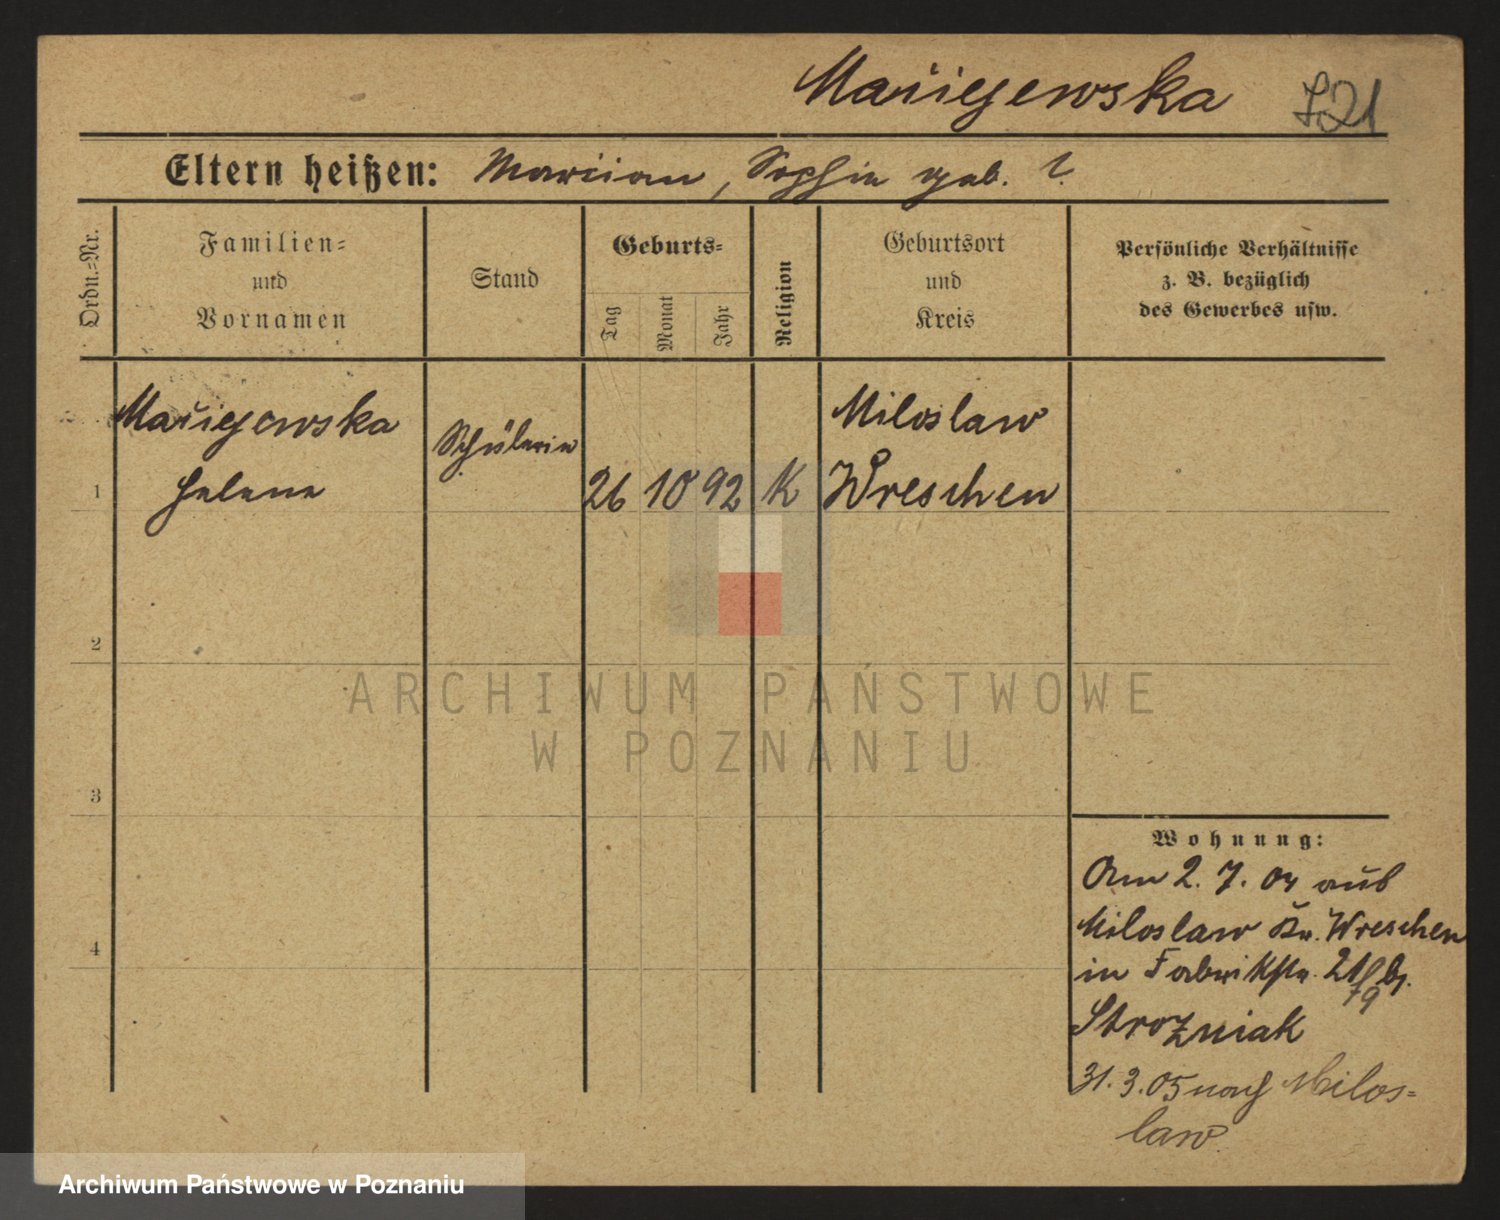 Maciejewska 721
Eltern heißen: Marcian, Sophie geb. ?
Ordn.=Nr.
Familien=
und
Vornamen
Stand
Geburts=
Tag
Monat
Jahr
Religion
Geburtsort
und
Kreis
Persönliche Verhältnisse
z. B. bezüglich
des Gewerbes usw.
Maciejewska
Helene
Schülerin
1
26 10 92 K
Miloslaw
Wreschen
2
3
4
Wohnung:
Am 2. 7. 04 aus
Miloslaw Kr. Wreschen
in Fabrikstr. 21 b.
79
Strozniak
31. 3. 05 nach Milos=
law.
ARCHIWUM PAŃSTWOWE
W POZNANIU
Archiwum Państwowe w Poznaniu